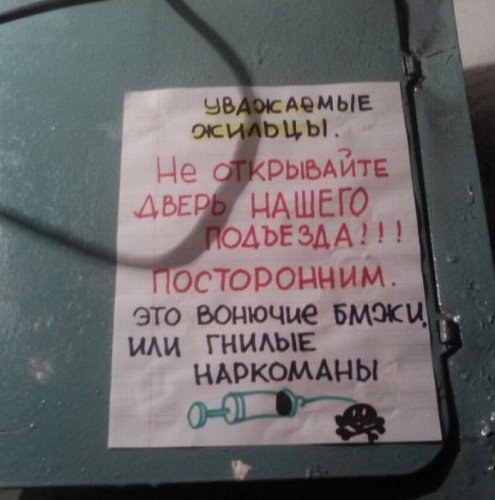 УВАЖАЕМЫЕ
ЖИЛЬЦЫ.
НЕ ОТКРЫВАЙТЕ
ДВЕРЬ НАШЕГО
ПОДЪЕЗДА!!!
ПОСТОРОННИМ.
ЭТО ВОНЮЧИЕ БМЖИ,
ИЛИ ГНИЛЫЕ
НАРКОМАНЫ